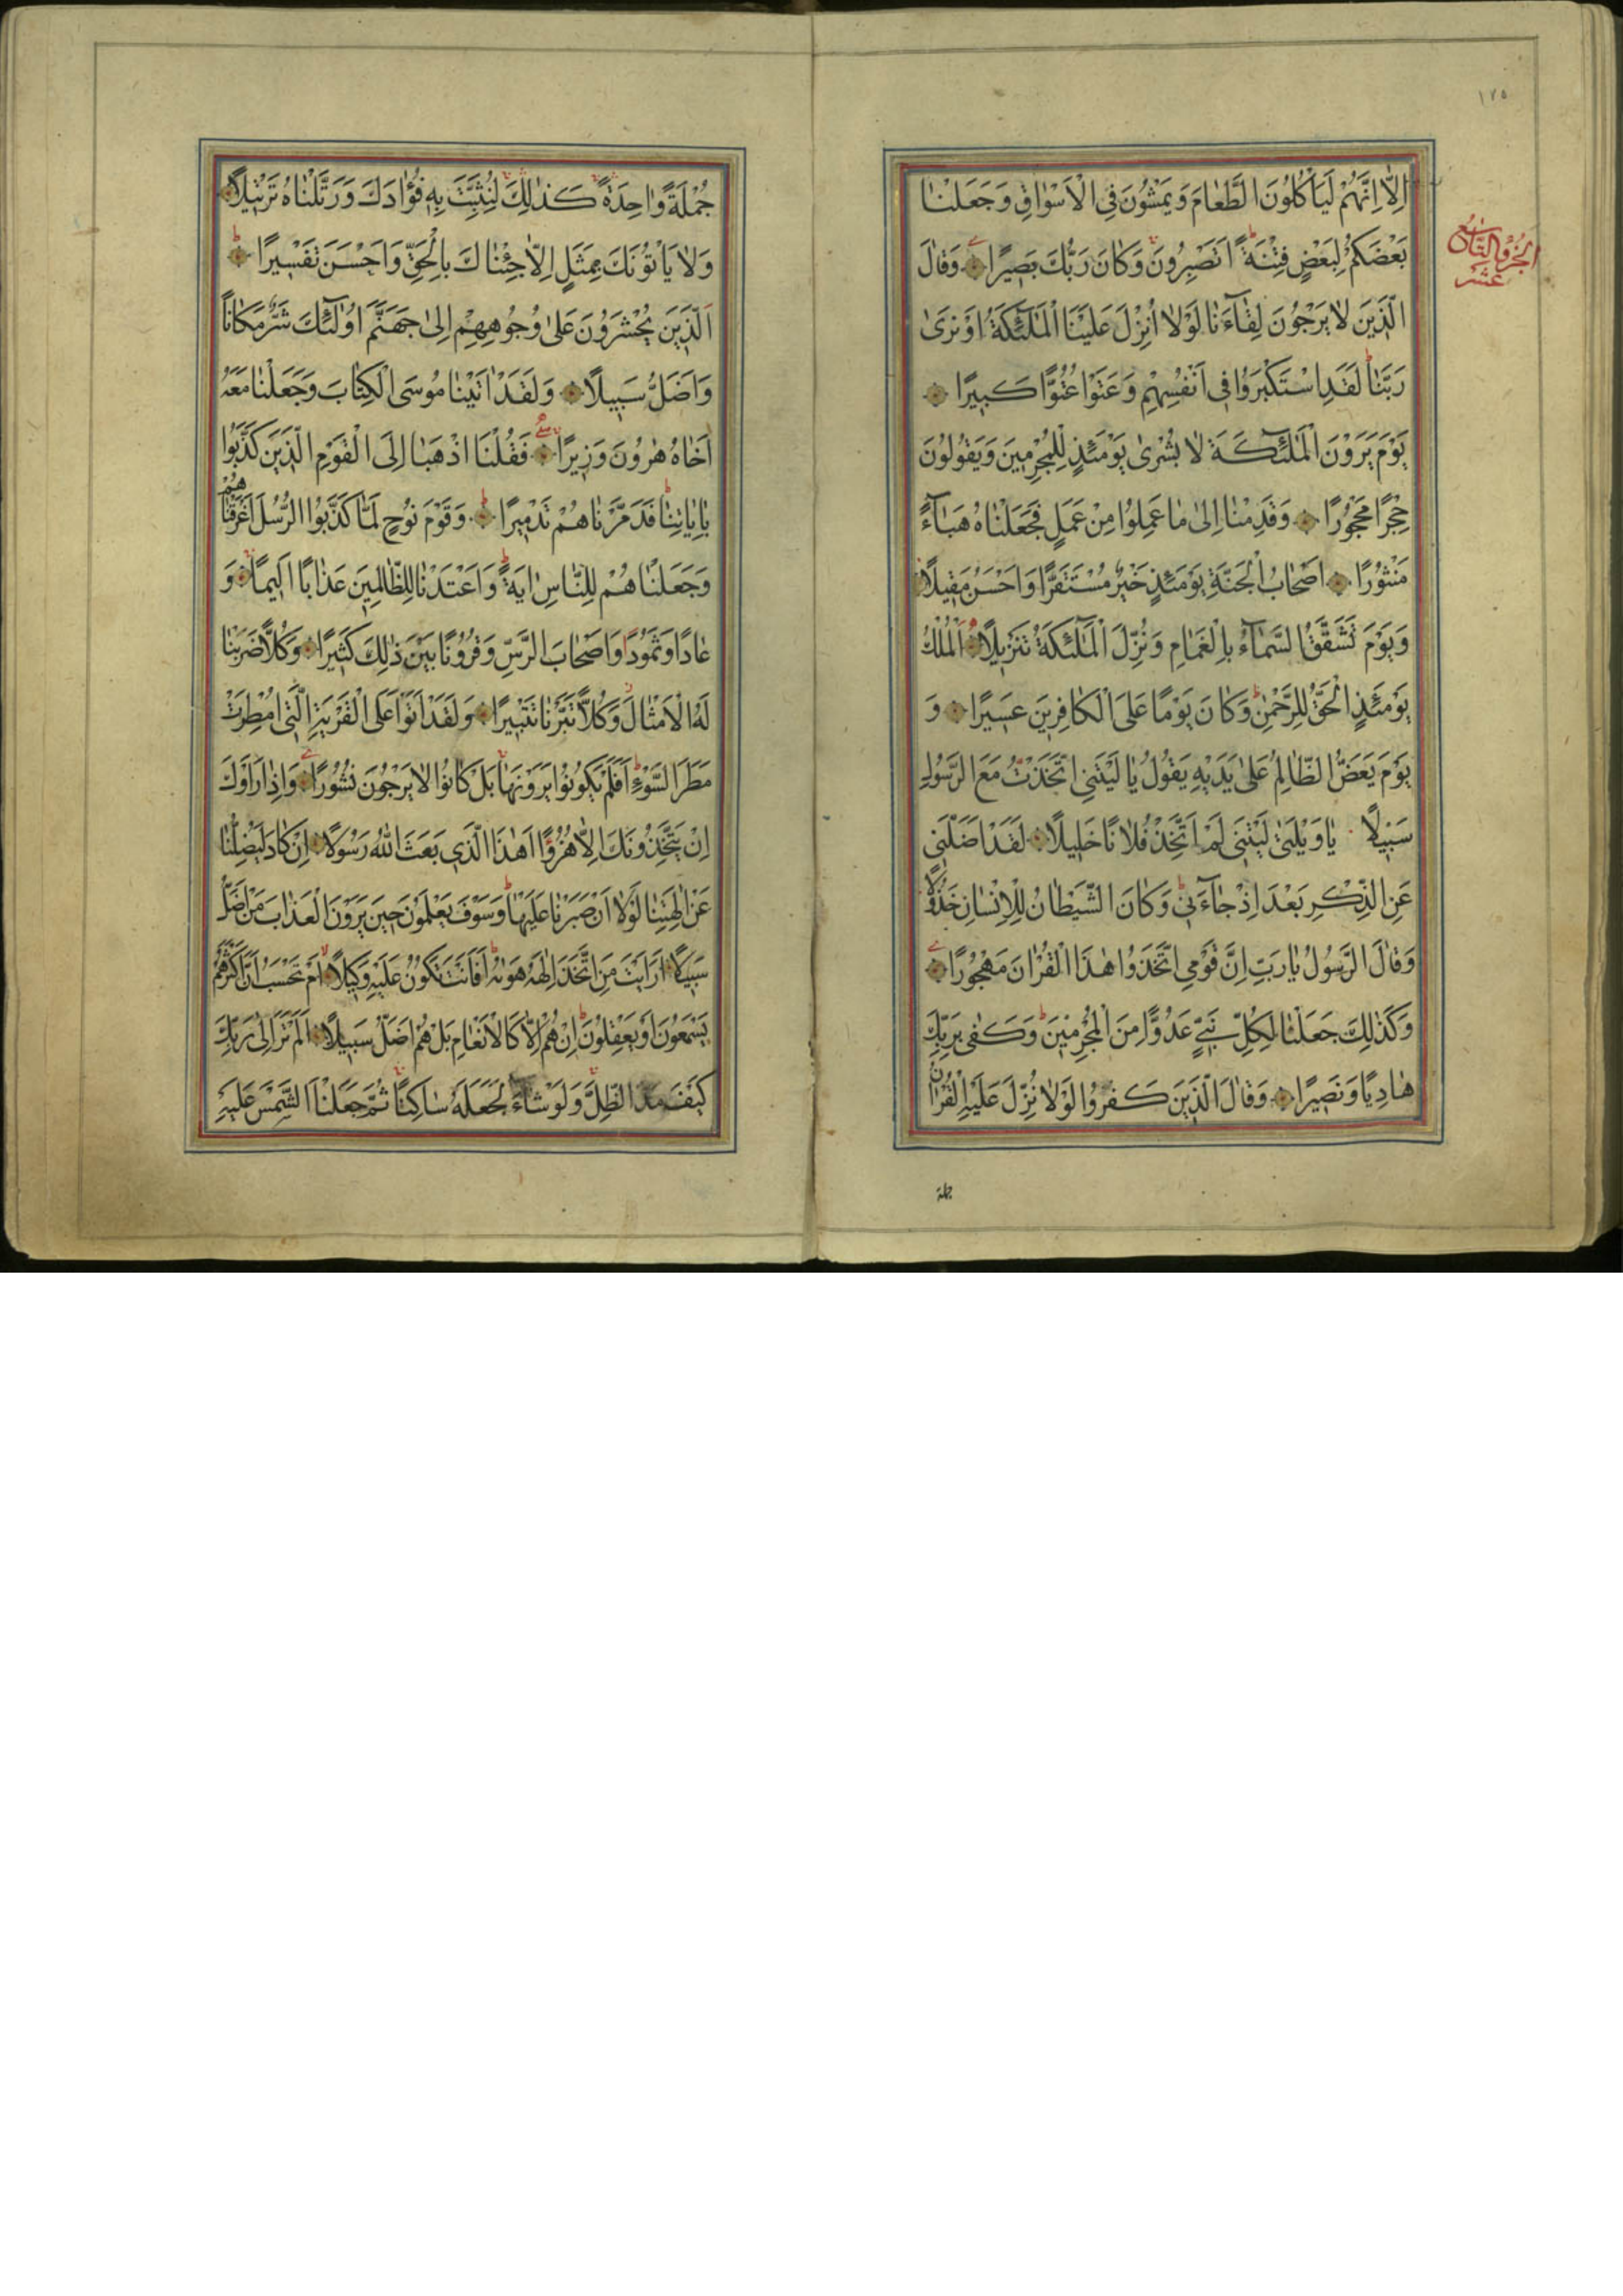 ١٧٥
اِلَّا اِنَّهُمْ لَيَأْكُلُونَ الطَّعَامَ وَيَمْشُونَ فِي الْاَسْوَاقِ وَجَعَلْنَا
بَعْضَكُمْ لِبَعْضٍ فِتْنَةً اَتَصْبِرُونَ وَكَانَ رَبُّكَ بَصِيرًا وَقَالَ
الجزؤ التاسع عشر
الَّذِينَ لَا يَرْجُونَ لِقَآءَنَا لَوْلَا اُنْزِلَ عَلَيْنَا الْمَلٰٓئِكَةُ اَوْ نَرٰى
رَبَّنَا لَقَدِ اسْتَكْبَرُوا فِي اَنْفُسِهِمْ وَعَتَوْا عُتُوًّا كَبِيرًا
يَوْمَ يَرَوْنَ الْمَلٰٓئِكَةَ لَا بُشْرٰى يَوْمَئِذٍ لِلْمُجْرِمِينَ وَيَقُولُونَ
حِجْرًا مَحْجُورًا وَقَدِمْنَا اِلٰى مَا عَمِلُوا مِنْ عَمَلٍ فَجَعَلْنَاهُ هَبَآءً
مَنْثُورًا اَصْحَابُ الْجَنَّةِ يَوْمَئِذٍ خَيْرٌ مُسْتَقَرًّا وَاَحْسَنُ مَقِيلًا
وَيَوْمَ تَشَقَّقُ السَّمَآءُ بِالْغَمَامِ وَنُزِّلَ الْمَلٰٓئِكَةُ تَنْزِيلًا اَلْمُلْكُ
يَوْمَئِذٍ الْحَقُّ لِلرَّحْمٰنِ وَكَانَ يَوْمًا عَلَى الْكَافِرِينَ عَسِيرًا وَ
يَوْمَ يَعَضُّ الظَّالِمُ عَلٰى يَدَيْهِ يَقُولُ يَا لَيْتَنِي اتَّخَذْتُ مَعَ الرَّسُولِ
سَبِيلًا يَا وَيْلَتٰى لَيْتَنِي لَمْ اَتَّخِذْ فُلَانًا خَلِيلًا لَقَدْ اَضَلَّنِي
عَنِ الذِّكْرِ بَعْدَ اِذْ جَآءَنِي وَكَانَ الشَّيْطَانُ لِلْاِنْسَانِ خَذُولًا
وَقَالَ الرَّسُولُ يَا رَبِّ اِنَّ قَوْمِي اتَّخَذُوا هٰذَا الْقُرْاٰنَ مَهْجُورًا
وَكَذٰلِكَ جَعَلْنَا لِكُلِّ نَبِيٍّ عَدُوًّا مِنَ الْمُجْرِمِينَ وَكَفٰى بِرَبِّكَ
هَادِيًا وَنَصِيرًا وَقَالَ الَّذِينَ كَفَرُوا لَوْلَا نُزِّلَ عَلَيْهِ الْقُرْاٰنُ
جملة
جُمْلَةً وَاحِدَةً كَذٰلِكَ لِنُثَبِّتَ بِهِ فُؤَادَكَ وَرَتَّلْنَاهُ تَرْتِيلًا
وَلَا يَأْتُونَكَ بِمَثَلٍ اِلَّا جِئْنَاكَ بِالْحَقِّ وَاَحْسَنَ تَفْسِيرًا
اَلَّذِينَ يُحْشَرُونَ عَلٰى وُجُوهِهِمْ اِلٰى جَهَنَّمَ اُولٰٓئِكَ شَرٌّ مَكَانًا
وَاَضَلُّ سَبِيلًا وَلَقَدْ اٰتَيْنَا مُوسَى الْكِتَابَ وَجَعَلْنَا مَعَهُ
اَخَاهُ هٰرُونَ وَزِيرًا فَقُلْنَا اذْهَبَا اِلَى الْقَوْمِ الَّذِينَ كَذَّبُوا
بِاٰيَاتِنَا فَدَمَّرْنَاهُمْ تَدْمِيرًا وَقَوْمَ نُوحٍ لَمَّا كَذَّبُوا الرُّسُلَ اَغْرَقْنَاهُمْ
وَجَعَلْنَاهُمْ لِلنَّاسِ اٰيَةً وَاَعْتَدْنَا لِلظَّالِمِينَ عَذَابًا اَلِيمًا وَ
عَادًا وَثَمُودَا وَاَصْحَابَ الرَّسِّ وَقُرُونًا بَيْنَ ذٰلِكَ كَثِيرًا وَكُلًّا ضَرَبْنَا
لَهُ الْاَمْثَالَ وَكُلًّا تَبَّرْنَا تَتْبِيرًا وَلَقَدْ اَتَوْا عَلَى الْقَرْيَةِ الَّتِي اُمْطِرَتْ
مَطَرَ السَّوْءِ اَفَلَمْ يَكُونُوا يَرَوْنَهَا بَلْ كَانُوا لَا يَرْجُونَ نُشُورًا وَاِذَا رَاَوْكَ
اِنْ يَتَّخِذُونَكَ اِلَّا هُزُوًا اَهٰذَا الَّذِي بَعَثَ اللهُ رَسُولًا اِنْ كَادَ لَيُضِلُّنَا
عَنْ اٰلِهَتِنَا لَوْلَا اَنْ صَبَرْنَا عَلَيْهَا وَسَوْفَ يَعْلَمُونَ حِينَ يَرَوْنَ الْعَذَابَ مَنْ اَضَلُّ
سَبِيلًا اَرَاَيْتَ مَنِ اتَّخَذَ اِلٰهَهُ هَوٰيهُ اَفَاَنْتَ تَكُونُ عَلَيْهِ وَكِيلًا اَمْ تَحْسَبُ اَنَّ اَكْثَرَهُمْ
يَسْمَعُونَ اَوْ يَعْقِلُونَ اِنْ هُمْ اِلَّا كَالْاَنْعَامِ بَلْ هُمْ اَضَلُّ سَبِيلًا اَلَمْ تَرَ اِلٰى رَبِّكَ
كَيْفَ مَدَّ الظِّلَّ وَلَوْ شَآءَ لَجَعَلَهُ سَاكِنًا ثُمَّ جَعَلْنَا الشَّمْسَ عَلَيْهِ